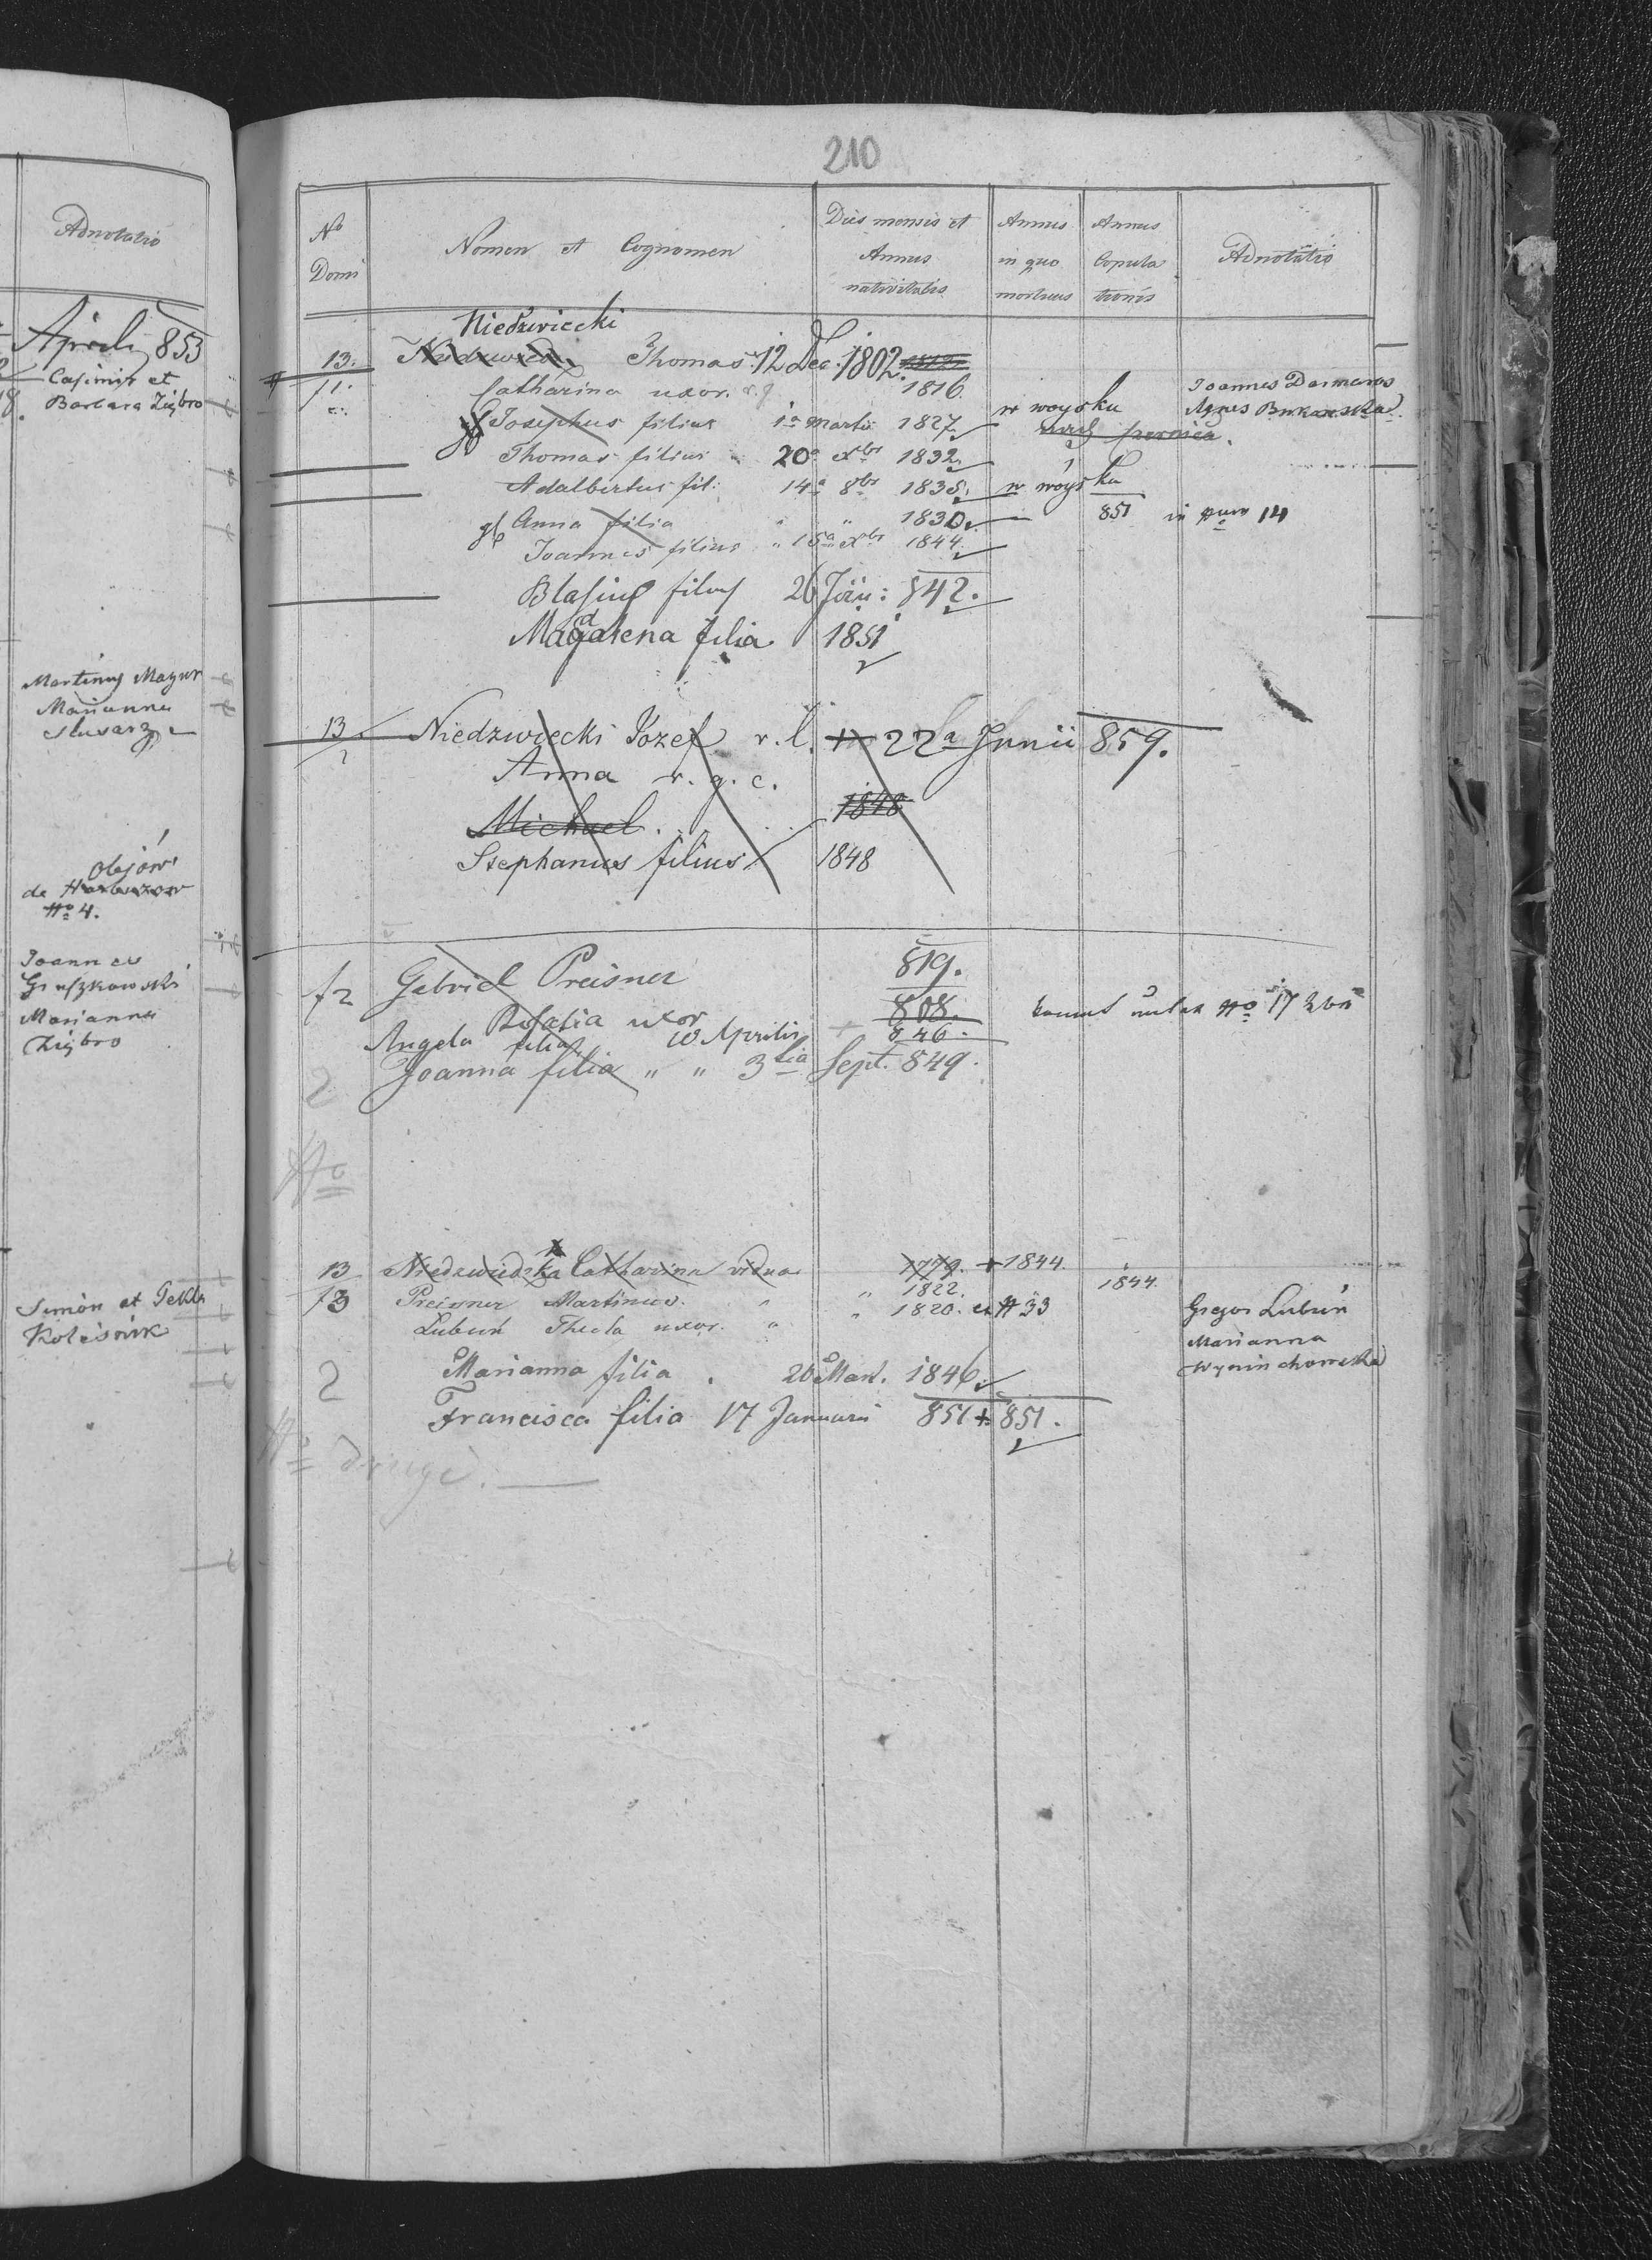 Adnotatio
Aprili 853
Casimir et
Barbara Ziębro
Martinus Mazur
Marianna
Slusarz
Olejów
de Harbuzow
No 4.
Joannes
Gruszkowski
Marianna
Ziębro
Simon et Tekla
Kolesnik
210
No Domi
Nomen et Cognomen
Dies mensis et Annus nativitatis
Annus in quo mortuus
Annus Copulationis
Adnotatio
Niedzwiecki
13. Thomas 12 Dec. 1802.
11. Catharina uxor. 1816.
Joannes Darmaros
Josephus filius 1a Martii 1827 w woysku
Agnes
Thomas filius 20a Xbr 1832
Adalbertus fil: 14a 8br 1835. w woysku
Anna filia " " 1830. 851 in Nuro 14
Joannes filius " 15a Xbr 1844.
Blasius filius 26 Jan: 842.
Magdalena filia 1851
13. Niedzwiecki Jozef r. l. + 22a Junii 859.
Anna r. g. c.
Michael. 1848
Stephanus filius 1848
12 Gabriel Preisner 819.
Rosalia uxor 808.
No 17
Angela filia 10 Aprilis + 846.
Joanna filia " " 3tia Sept. 849.
2
No
13 Niedzwiedzka Catharina vidua 1779. + 1844.
13 Preisner Martinus. " " 1822. 1844.
Lubuń Thecla uxor. " " 1820. ex N 33
Gregor Lubuń
Marianna
2 Marianna filia . 20 Mart. 1846.
Francisca filia 17 Januarii 851 + 851.
No drugi.